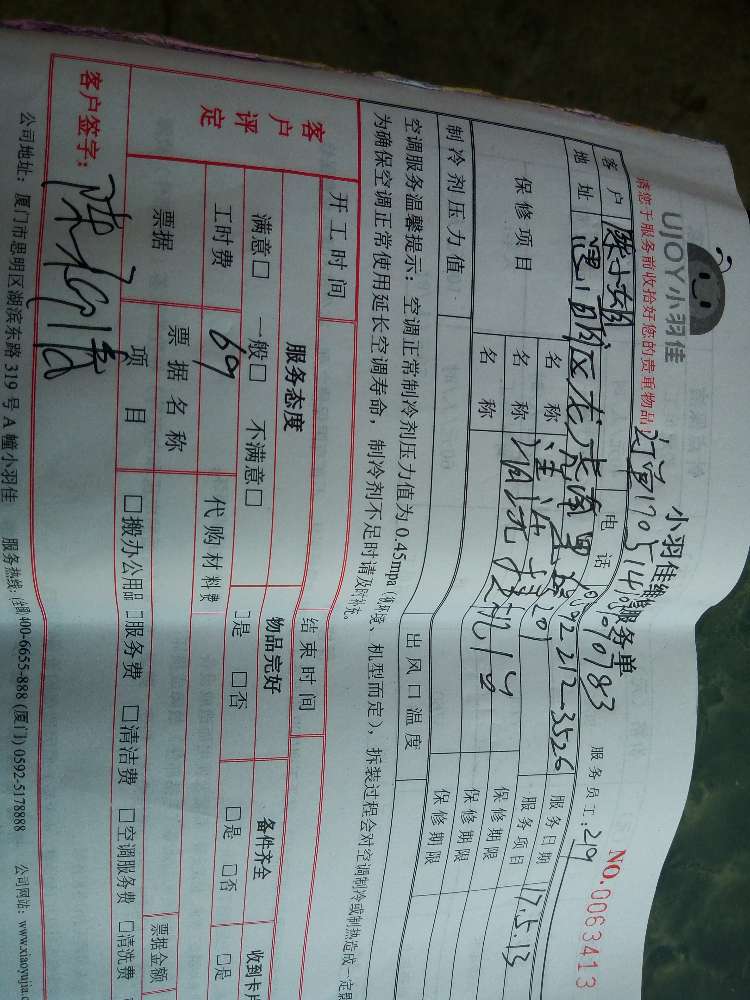 UJOY小羽佳
小羽佳 服务单
NO.0063413
请您于服务前收拾好您的贵重物品!
服务员工: 219
客户 电话 服务日期 17.5.13
地址 思明区龙虎 服务项目
保修项目 名称 清洗 保修期限
名称 保修期限
名称 保修期限
制冷剂压力值 出风口温度
空调服务温馨提示: 空调正常制冷剂压力值为0.45mpa
为确保空调正常使用延长空调寿命, 制冷剂不足时请及时补充。
机型而定), 拆装过程会对空调制冷或制热造成一定
开工时间 结束时间
客户评定 服务态度 物品完好 备件齐全 收到卡片
满意□ 一般□ 不满意□ □是 □否 □是 □否 □是
工时费 69 代购材料费
票据 票据名称 票据金额
项目 □搬办公用品 □服务费 □清洁费 □空调服务费 □清洗费
客户签字:
公司地址: 厦门市思明区湖滨东路319号A幢小羽佳 服务热线: 400-6655-888 (厦门) 0592-5178888 公司网站: www.xiaoyujia.c